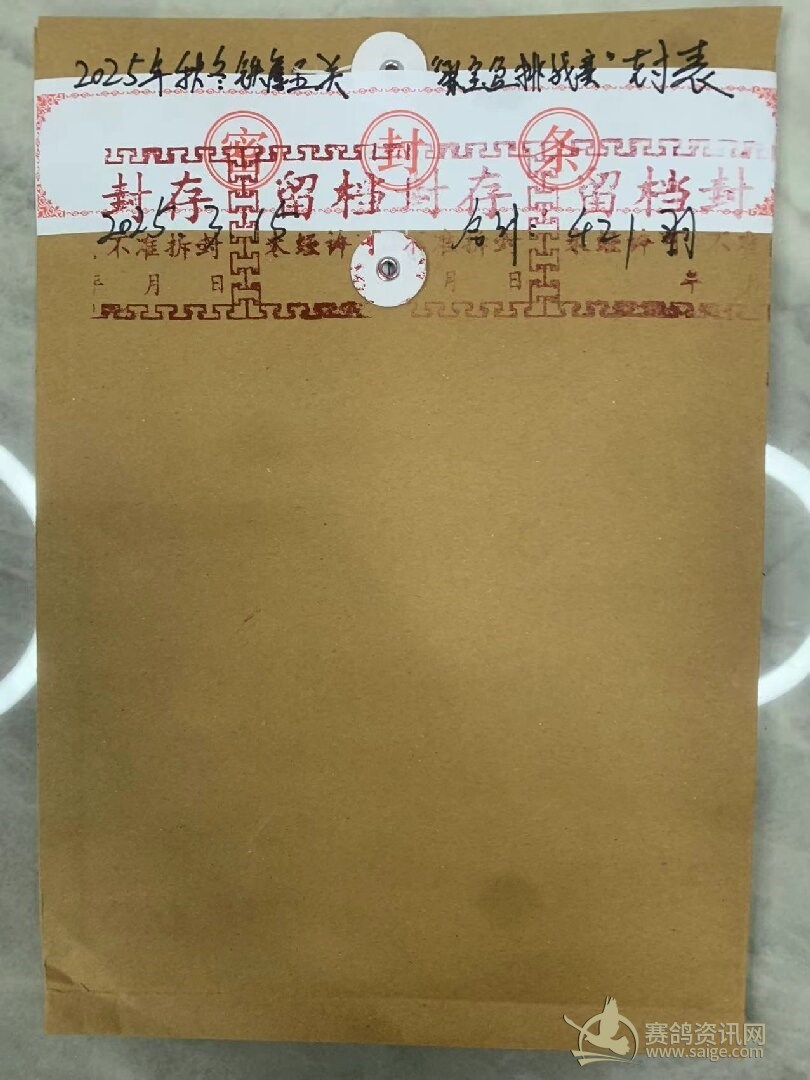 2025年秋冬铁鹰五关 "聚宝盆挑战赛"封表
密 封 条
封存 留档 封存 留档 封
2025 3 15 合计: 421羽
不准拆封 未经许可 不准拆封 未经许
年 月 日 年 月 日 年 月
赛鸽资讯网
www.saige.com